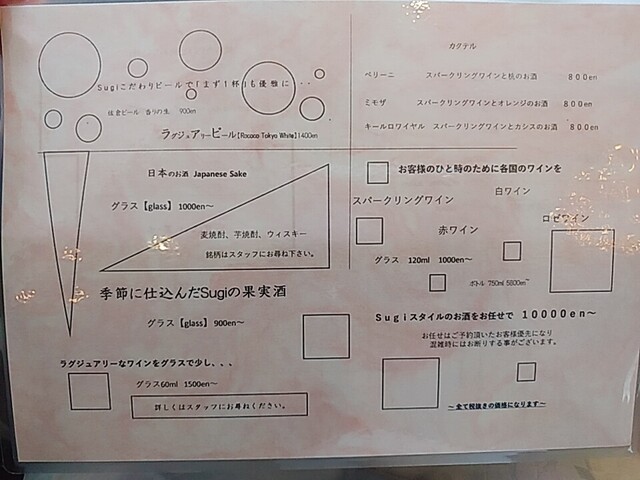 Sugiこだわりビールで「まず1杯」も優雅に・・
佐倉ビール 香りの生 900en
ラグジュアリービール【Rococo Tokyo White】1400en
カクテル
ベリーニ スパークリングワインと桃のお酒 800en
ミモザ スパークリングワインとオレンジのお酒 800en
キールロワイヤル スパークリングワインとカシスのお酒 800en
日本のお酒 Japanese Sake
グラス【glass】 1000en～
麦焼酎、芋焼酎、ウィスキー
銘柄はスタッフにお尋ね下さい。
季節に仕込んだSugiの果実酒
グラス【glass】 900en～
ラグジュアリーなワインをグラスで少し、、、
グラス60ml 1500en～
詳しくはスタッフにお尋ねください。
お客様のひと時のために各国のワインを
白ワイン
スパークリングワイン
ロゼワイン
赤ワイン
グラス 120ml 1000en～
ボトル 750ml 5800en～
Sugiスタイルのお酒をお任せで 10000en～
お任せはご予約頂いたお客様優先になり
混雑時にはお断りする事がございます。
～全て税抜きの価格になります～